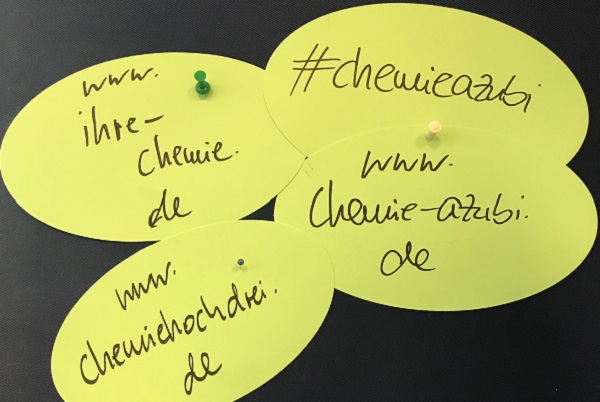 www.
ihre-
chemie.
de
#chemieazubi
www.
chemie-azubi.
de
www.
chemiehochdrei.
de